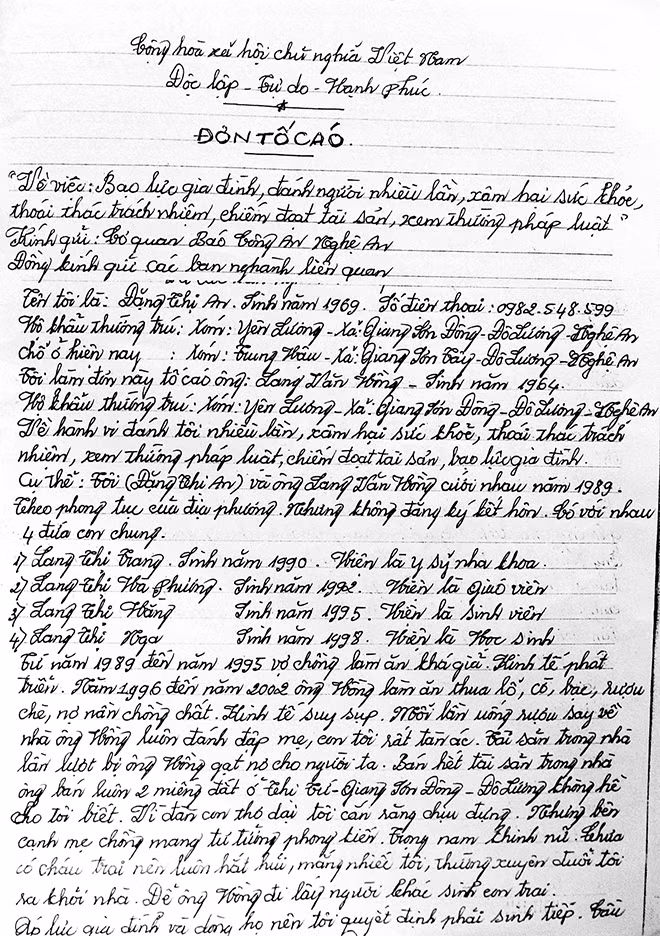 Cộng hoà xã hội chủ nghĩa Việt Nam
Độc lập - Tự do - Hạnh phúc.
ĐƠN TỐ CÁO.
"Về việc: Bạo lực gia đình, đánh người nhiều lần, xâm hại sức khỏe,
thoái thác trách nhiệm, chiếm đoạt tài sản, xem thường pháp luật"
Kính gửi: Cơ quan Báo Công An Nghệ An
Đồng kính gửi các ban nghành liên quan
Tên tôi là: Đặng Thị An. Sinh năm 1969. Số điện thoại: 0982.548.599
Hộ khẩu thường trú: Xóm: Yên Lương - Xã: Giang Sơn Đông - Đô Lương - Nghệ An
Chổ ở hiện nay : Xóm: Trung Hậu - Xã: Giang Sơn Tây - Đô Lương - Nghệ An
Tôi làm đơn này tố cáo ông: Lang Văn Hồng - Sinh năm 1964.
Hộ khẩu thường trú: Xóm: Yên Lương - Xã: Giang Sơn Đông - Đô Lương - Nghệ An
Về hành vi đánh tôi nhiều lần, xâm hại sức khoẻ, thoái thác trách
nhiệm, xem thường pháp luật, chiếm đoạt tài sản, bạo lực gia đình.
Cụ thể: Tôi (Đặng Thị An) và ông Lang Văn Hồng cưới nhau năm 1989.
Theo phong tục của địa phương. Nhưng không đăng ký kết hôn. Có với nhau
4 đứa con chung.
1) Lang Thị Trang. Sinh năm 1990. Hiện là y sỹ nha khoa.
2) Lang Thị Hà Phương. Sinh năm 1992. Hiện là giáo viên
3) Lang Thị Hằng Sinh năm 1995. Hiện là sinh viên
4) Lang Thị Nga Sinh năm 1998. Hiện là Học sinh
Từ năm 1989 đến năm 1995 vợ chồng làm ăn khá giả. Kinh tế phát
triển. Năm 1996 đến năm 2002 ông Hồng làm ăn thua lổ, cờ, bạc, rượu
chè, nợ nần chồng chất. Kinh tế suy sụp. Mỗi lần uống rượu say về
nhà ông Hồng luôn đánh đập mẹ, con tôi rất tàn ác. Tài sản trong nhà
lần lượt bị ông Hồng gạt nợ cho người ta. Bán hết tài sản trong nhà
ông bán luôn 2 miếng đất ở Thị Tứ - Giang Sơn Đông - Đô Lương không hề
cho tôi biết. Vì đàn con thơ dại tôi cắn răng chịu đựng. Nhưng bên
cạnh mẹ chồng mang tư tưởng phong kiến. Trọng nam khinh nữ. Chưa
có cháu trai nên luôn hắt hủi, mắng nhiếc tôi, thường xuyên đuổi tôi
ra khỏi nhà. Để ông Hồng đi lấy người khác sinh con trai.
Áp lực gia đình và dòng họ nên tôi quyết định phải sinh tiếp.